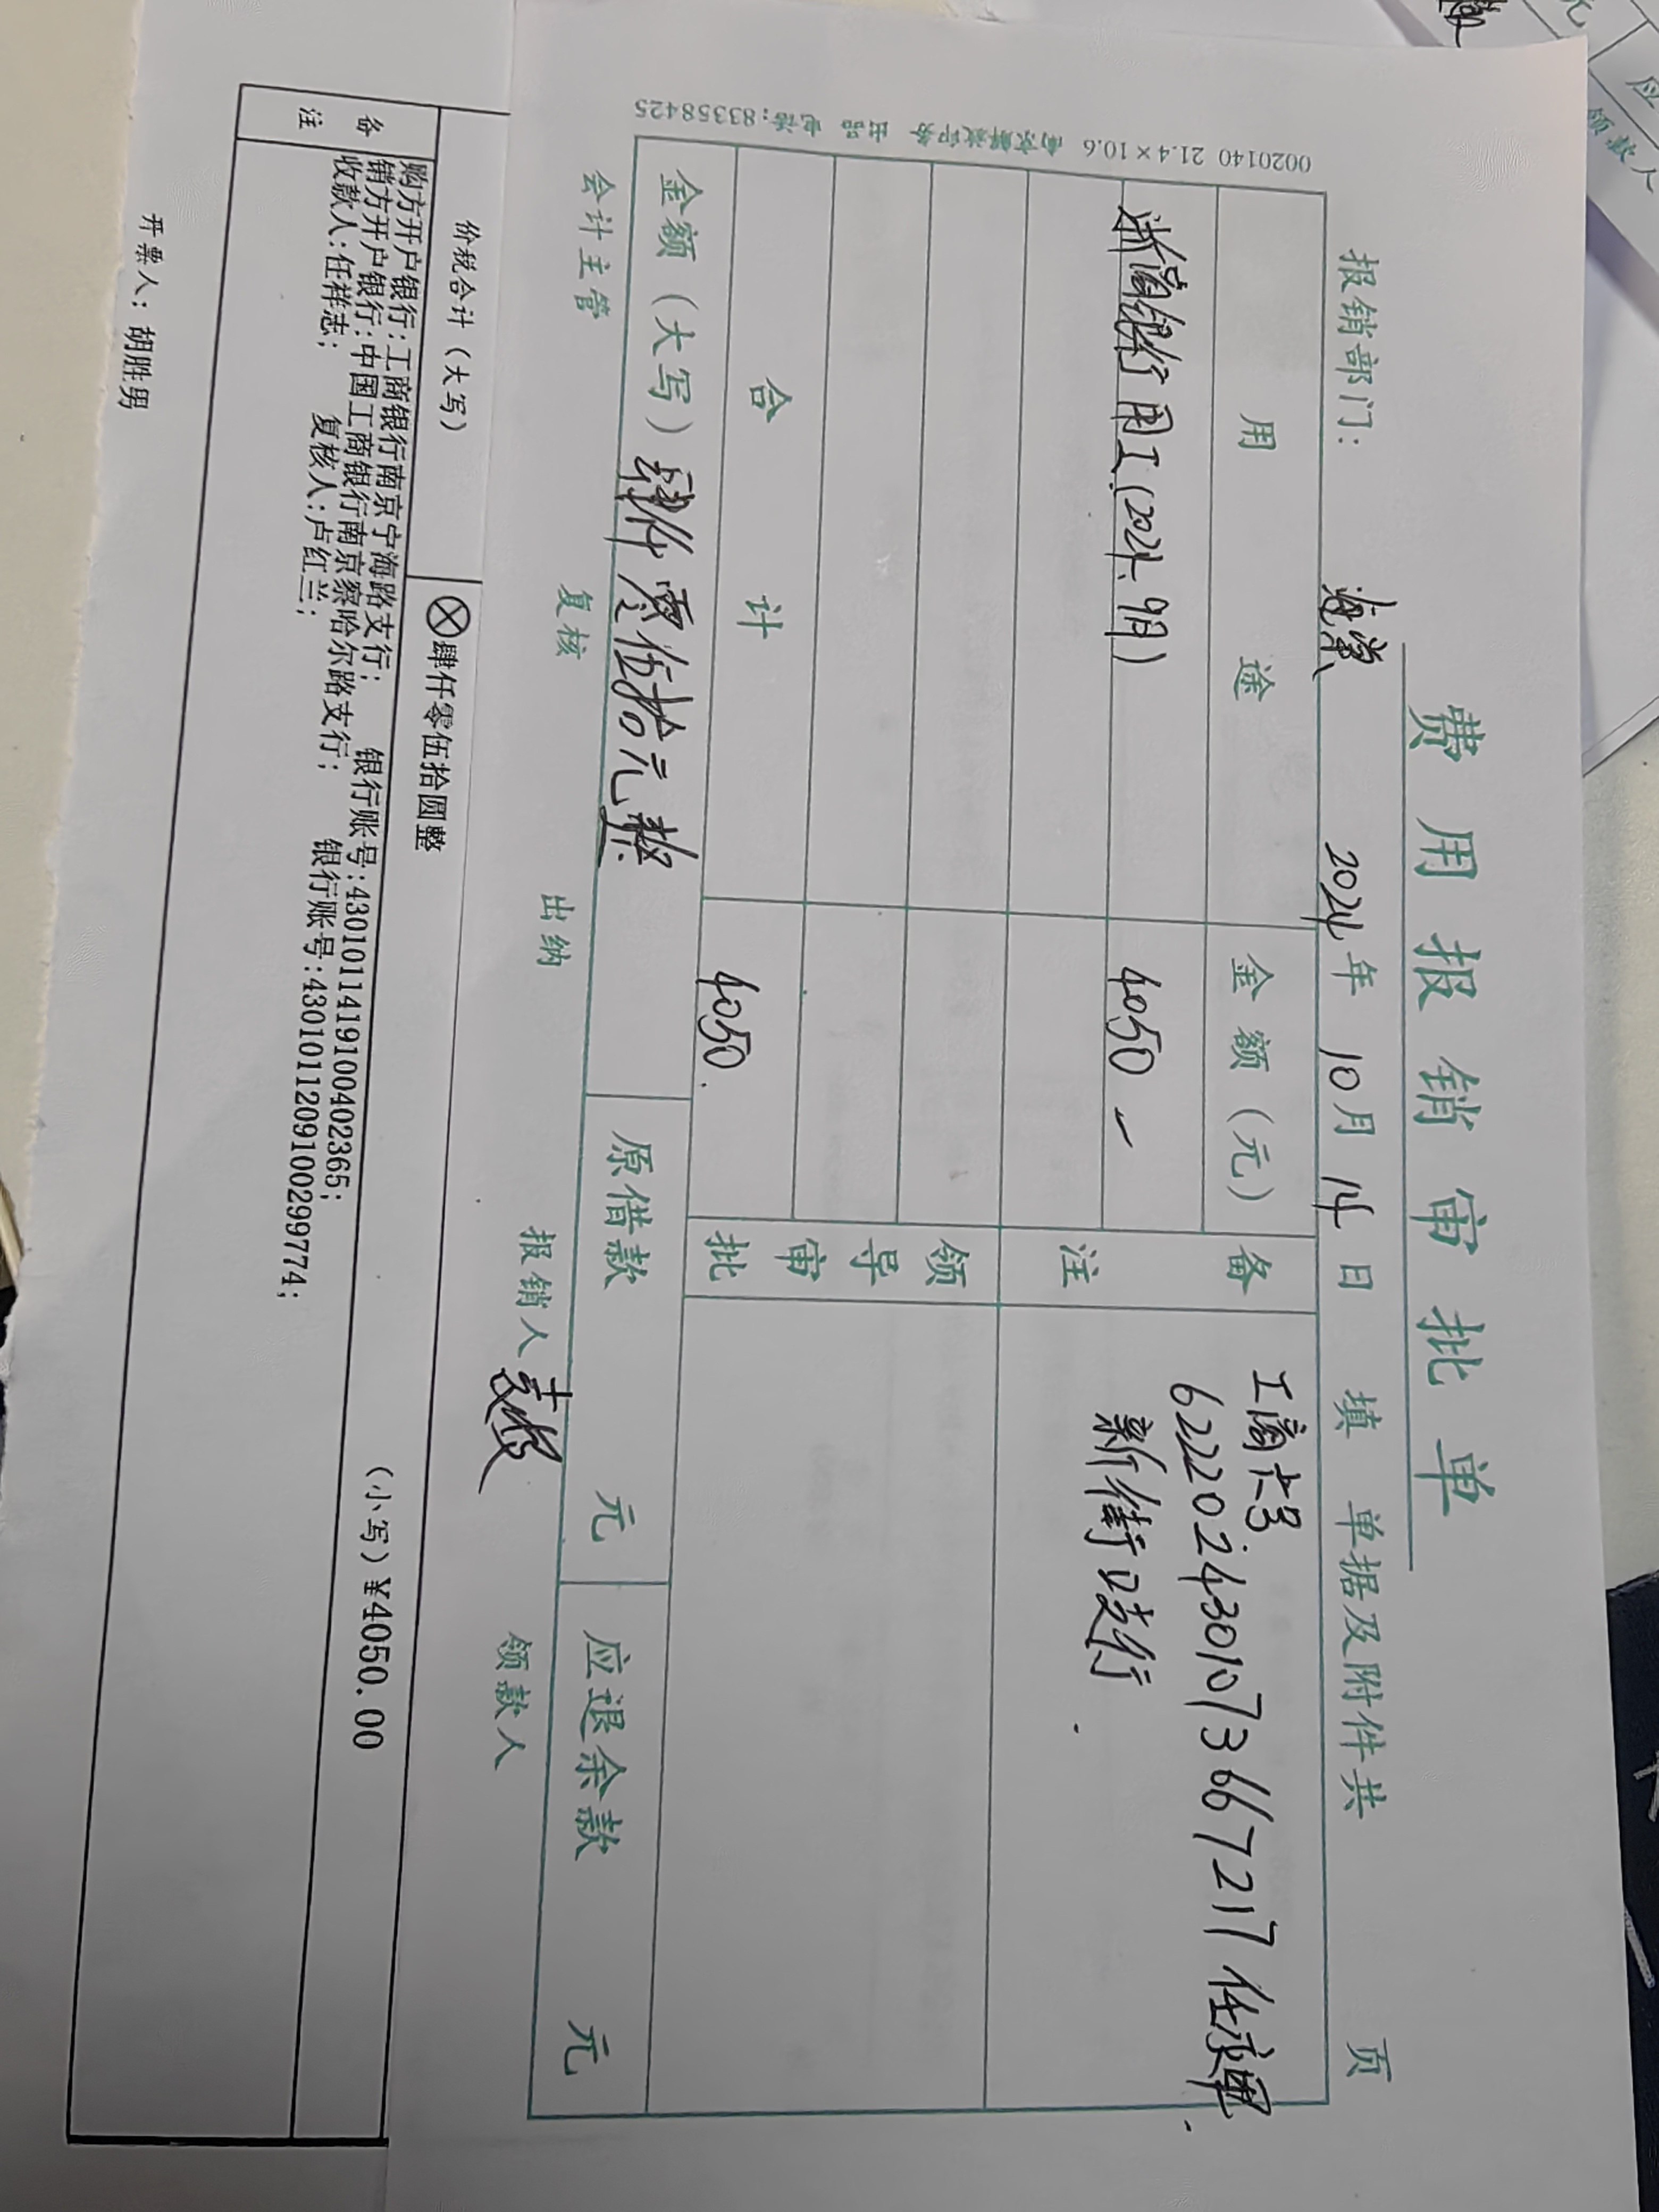 费用报销审批单
报销部门: 2024年10月14日 填 单据及附件共 页
用途 金额(元) 备注
浙商银行用工(2024.9月) 4050 -
工商卡号
6222024301073667217
新街口支行
领导审批
合计 4050.
金额(大写) 肆仟零伍拾元整 原借款 元 应退余款 元
会计主管 复核 出纳 报销人 领款人
0020140 21.4×10.6 南京解放印务 出品 电话:83358425
价税合计(大写) ⊗肆仟零伍拾圆整 (小写)¥4050.00
备注
购方开户银行:工商银行南京宁海路支行; 银行账号:4301011419100402365;
销方开户银行:中国工商银行南京察哈尔路支行; 银行账号:4301011209100299774;
收款人:任祥志; 复核人:卢红兰;
开票人: 胡胜男
元
应
领款人